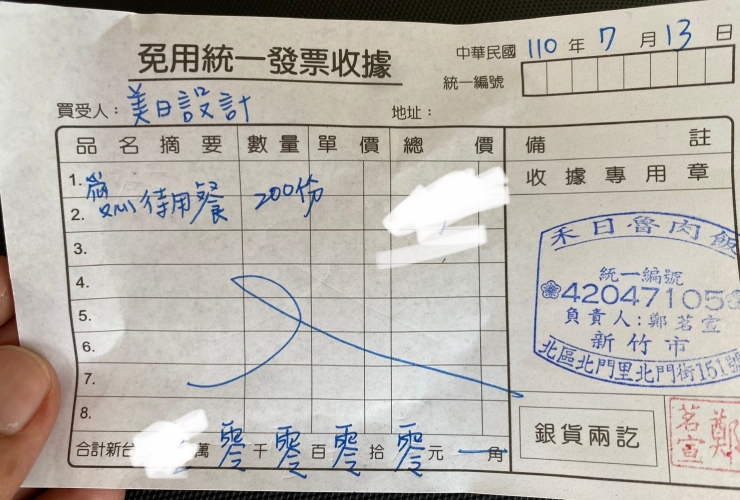 免用統一發票收據
中華民國 110 年 7 月 13 日
統一編號
買受人：美日設計
地址：
品名摘要 數量 單價 總價 備註
收據專用章
1. 愛心待用餐 200份
2.
3.
4.
5.
6.
7.
8.
禾日魯肉飯
統一編號
42047105
負責人:鄭茗宣
新竹市
北區北門里北門街151號
合計新台 萬 零 千 零 百 零 拾 零 元 一 角
銀貨兩訖
鄭茗宣